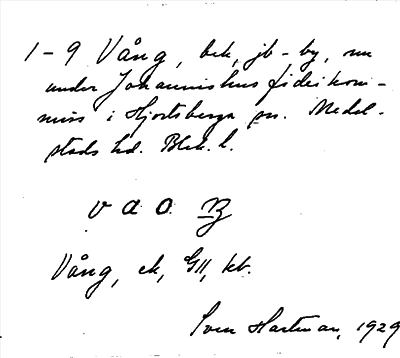 1-9 Vång, bek, jb-by, nu
under Johannishus fideikom-
miss i Hjortsberga sn. Medel-
stads hd. Blek. l.
v a o ŋ
Vång, ek, GII, kb.
Sven Hartman, 1929